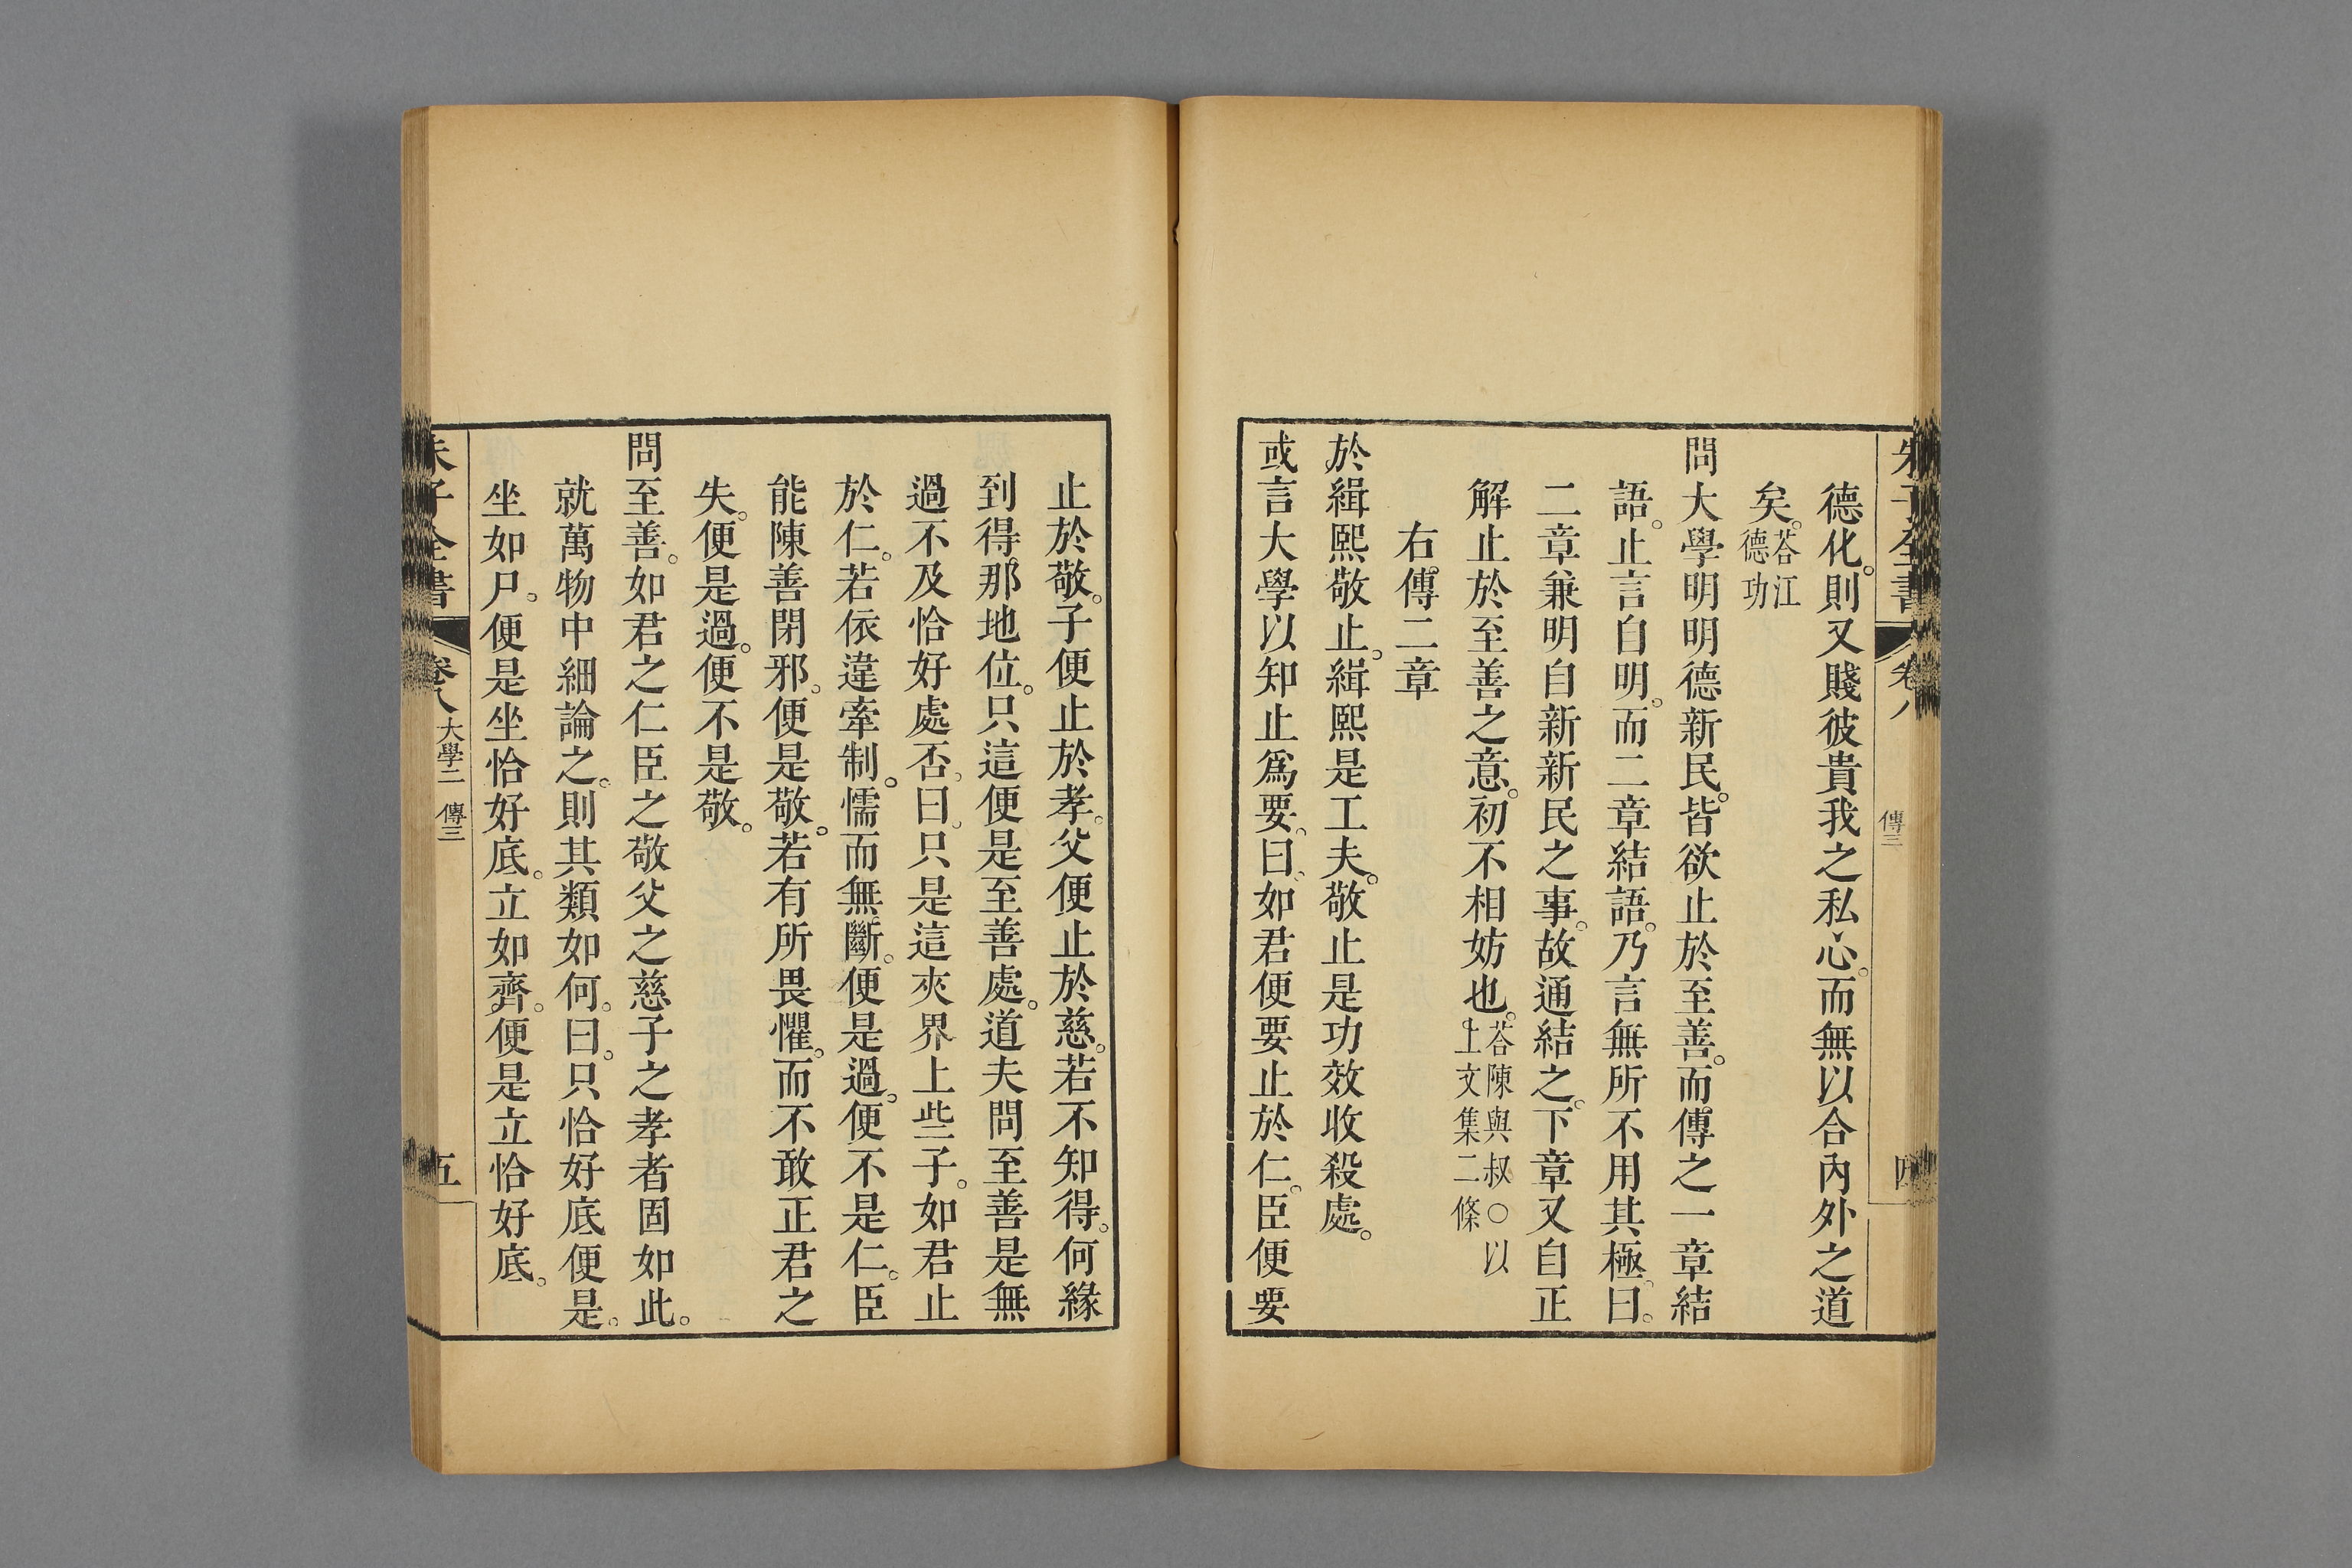 朱子全書 卷八 傳三 四
德化。則又賤彼貴我之私心。而無以合內外之道
矣。荅江德功
問大學明明德新民。皆欲止於至善。而傳之一章結
語。止言自明。而二章結語。乃言無所不用其極。曰。
二章兼明自新新民之事。故通結之。下章又自正
解止於至善之意。初不相妨也。荅陳與叔○以上文集二條
右傳二章
於緝熙敬止。緝熙是工夫。敬止是功效收殺處。
或言大學以知止爲要。曰。如君便要止於仁。臣便要
止於敬。子便止於孝。父便止於慈。若不知得。何緣
到得那地位。只這便是至善處。道夫問至善是無
過不及恰好處否。曰。只是這夾界上些子。如君止
於仁。若依違牽制。懦而無斷。便是過。便不是仁。臣
能陳善閉邪。便是敬。若有所畏懼。而不敢正君之
失。便是過。便不是敬。
問至善。如君之仁臣之敬父之慈子之孝者固如此。
就萬物中細論之。則其類如何。曰。只恰好底便是。
坐如尸。便是坐恰好底。立如齊。便是立恰好底。
朱子全書 卷八 大學二 傳三 五